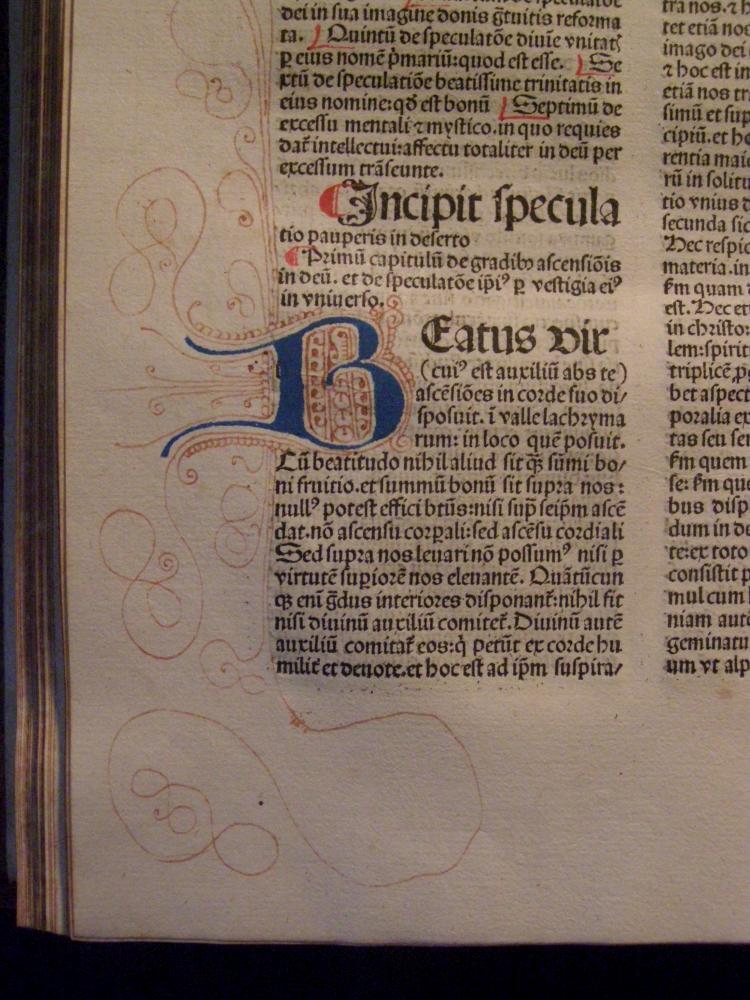 dei in sua imagine donis g̃tuitis reforma
ta. Quintũ de speculatõe diuie vnitatꝭ
ꝑ eius nomẽ p̃mariũ: quod est esse. Se
xtũ de speculatiõe beatissime trinitatis in
eius nomine: qđ est bonũ Septimũ de
excessu mentali ⁊ mystico. in quo requies
dat̃ intellectui: affectu totaliter in deũ per
excessum trãseunte.
Incipit specula
tio pauperis in deserto
Primũ capitulũ de gradibꝰ ascensiõis
in deũ. et de speculatõe ip̃iꝰ ꝑ vestigia eiꝰ
in vniuerso.
BEatus vir
(cuiꝰ est auxiliũ abs te)
ascẽsiões in corde suo di/
sposuit. ĩ valle lachryma
rum: in loco quẽ posuit.
Cũ beatitudo nihil aliud sit q̃ȝ sũmi bo/
ni fruitio. et summũ bonũ sit supra nos:
nullꝰ potest effici btũs: nisi sup̃ seip̃m ascẽ
dat. nõ ascensu corꝑali: sed ascẽsu cordiali
Sed supra nos leuari nõ possumꝰ nisi ꝑ
virtutẽ supiorẽ nos eleuantẽ. Quãtũcun
qȝ eni g̃dus interiores disponant̃: nihil fit
nisi diuinũ auxiliũ comitet̃. Diuinũ autẽ
auxiliũ comitat̃ eos: q̇ petũt ex corde hu
milit̃ et deuote. et hoc est ad ip̃m suspira/
tra nos. ⁊
tet etiã nos
imago dei
⁊ hoc est in
etiã nos tr
simũ et sup
cipiũ. et h
rentia maio
rũ in solitu
tio vnius d
secunda sic
Hec respic
materia. in
ẜm quam
est. Hec et
in christo:
lem: spirit
triplicẽ
bet aspect
poralia ex
tas seu sen
ẜm quem
se: ẜm que
bus disp
dum in de
te: ex toto
consistit
mul cum
niam autẽ
geminatu
um vt alp